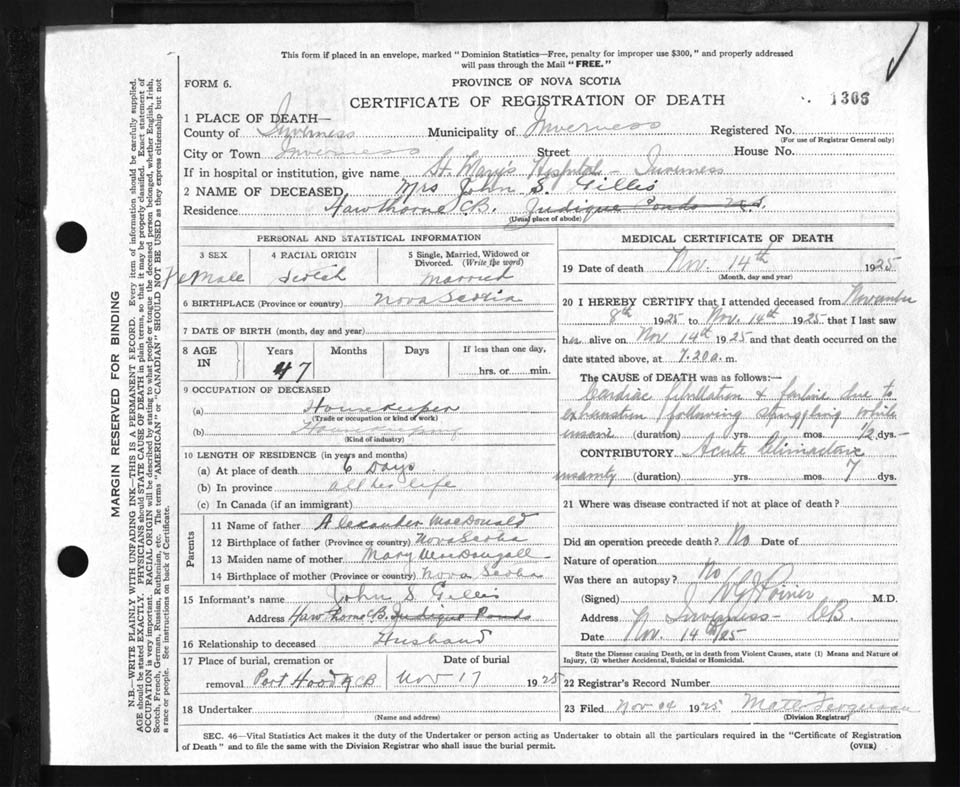 This form if placed in an envelope, marked "Dominion Statistics—Free, penalty for improper use $300," and properly addressed
will pass through the Mail "FREE."
FORM 6.
PROVINCE OF NOVA SCOTIA
CERTIFICATE OF REGISTRATION OF DEATH
1305
1 PLACE OF DEATH—
County of Inverness Municipality of Inverness Registered No.
(For use of Registrar General only)
City or Town Inverness Street House No.
If in hospital or institution, give name St. Mary's Hospital - Inverness
2 NAME OF DECEASED Mrs John S. Gillis
Residence Hawthorne CB. Judique Ponds N.S.
(Usual place of abode)
PERSONAL AND STATISTICAL INFORMATION
3 SEX 4 RACIAL ORIGIN 5 Single, Married, Widowed or
Divorced. (Write the word)
Female Scotch Married
6 BIRTHPLACE (Province or country) Nova Scotia
7 DATE OF BIRTH (month, day and year)
8 AGE IN Years Months Days If less than one day,
47 hrs. or min.
9 OCCUPATION OF DECEASED
(a) Housekeeper
(Trade or occupation or kind of work)
(b) Housekeeping
(Kind of industry)
10 LENGTH OF RESIDENCE (in years and months)
(a) At place of death 6 Days
(b) In province all her life
(c) In Canada (if an immigrant)
Parents
11 Name of father Alexander MacDonald
12 Birthplace of father (Province or country) Nova Scotia
13 Maiden name of mother Mary MacDougall
14 Birthplace of mother (Province or country) Nova Scotia
15 Informant's name John S Gillis
Address Hawthorne CB. Judique Ponds
16 Relationship to deceased Husband
17 Place of burial, cremation or Date of burial
removal Port Hood CB Nov 17 1925
18 Undertaker
(Name and address)
MEDICAL CERTIFICATE OF DEATH
19 Date of death Nov. 14th 1925
(Month, day and year)
20 I HEREBY CERTIFY that I attended deceased from November
8th 1925 to Nov. 14th 1925 that I last saw
her alive on Nov 14th 1925 and that death occurred on the
date stated above, at 7.20 a. m.
The CAUSE OF DEATH was as follows:—
Cardiac fibrillation & failure due to
exhaustion following struggling while
insane (duration) yrs. mos. 1/2 dys.
CONTRIBUTORY Acute Climacteric
insanity (duration) yrs. mos. 7 dys.
21 Where was disease contracted if not at place of death?
Did an operation precede death? No Date of
Nature of operation
Was there an autopsy? No
(Signed) M.D.
Address Inverness CB.
Date Nov. 14th/25
State the Disease causing Death, or in death from Violent Causes, state (1) Means and Nature of
Injury, (2) whether Accidental, Suicidal or Homicidal.
22 Registrar's Record Number
23 Filed Nov 1925 Ferguson
(Division Registrar)
SEC. 46—Vital Statistics Act makes it the duty of the Undertaker or person acting as Undertaker to obtain all the particulars required in the "Certificate of Registration
of Death" and to file the same with the Division Registrar who shall issue the burial permit.
(OVER)
MARGIN RESERVED FOR BINDING
N.B.—WRITE PLAINLY WITH UNFADING INK—THIS IS A PERMANENT RECORD. Every item of information should be carefully supplied.
AGE should be stated EXACTLY. PHYSICIANS should STATE CAUSE OF DEATH in plain terms, so that it may be properly classified. Exact statement of
OCCUPATION is very important. RACIAL ORIGIN will be described by stating to what people or tongue the deceased person belonged, whether English, Irish,
Scotch, French, German, Russian, Ruthenian, etc. The terms "AMERICAN" or "CANADIAN" SHOULD NOT BE USED as they express citizenship but not
a race or people. See instructions on back of Certificate.